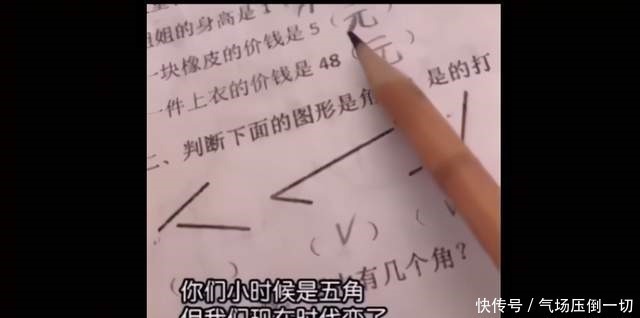 姐姐的身高是1
一块橡皮的价钱是5（元）
一件上衣的价钱是48（元）
二、判断下面的图形是角 是的打
（√）（
（ ）
有几个角？
你们小时候是五角
但我们现在时代变了
快传号／气场压倒一切